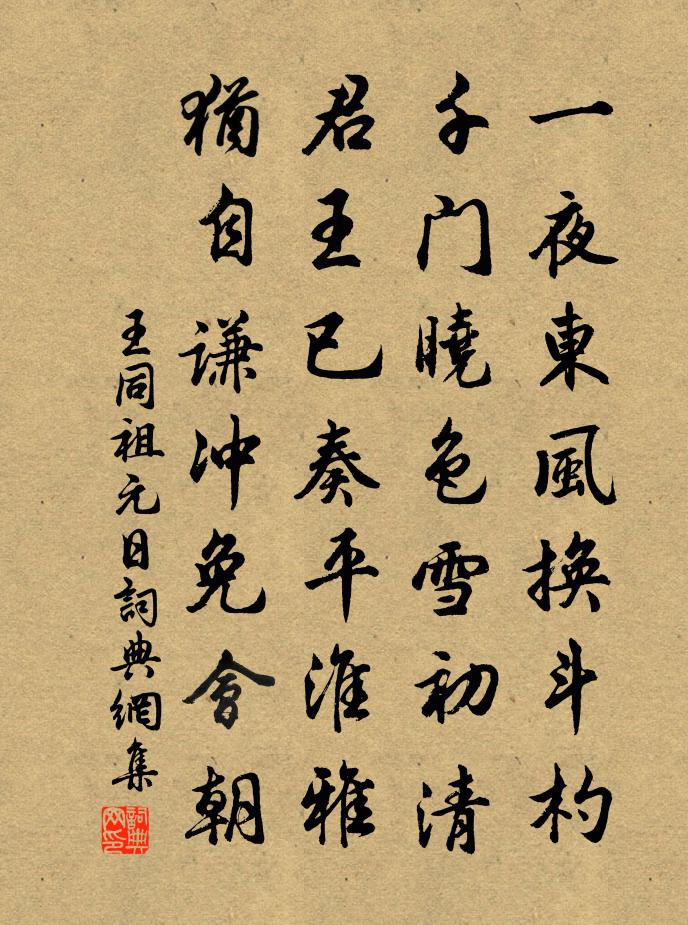 一夜東風換斗杓
千门曉色雪初清
君王已奏平淮雅
猶自謙冲免會朝
王同祖元日詞典網集
詞典网印